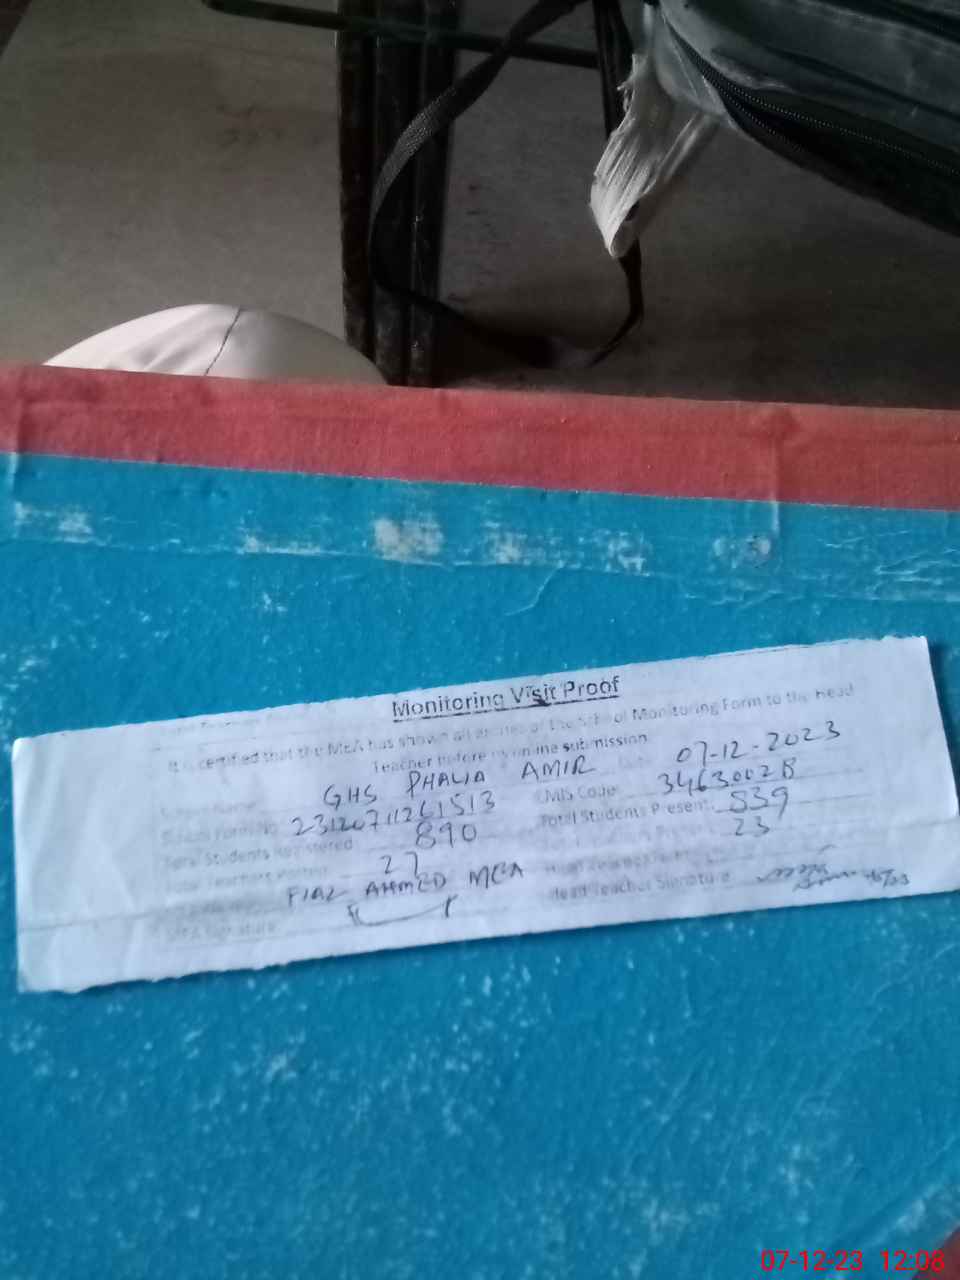 Monitoring Visit Proof
It is certified that the MEA has shown all entries of the School Monitoring Form to the Head
Teacher before by online submission.
GHS PHALIA AMIR Date 07-12-2023
23120711261513 EMIS Code: 34630028
Total Students Registered 890 Total Students Present: 539
Total Teachers Posted: 27 23
FIAZ AHMED MEA
MEA Signature Head Teacher Signature
07-12-23 12:08